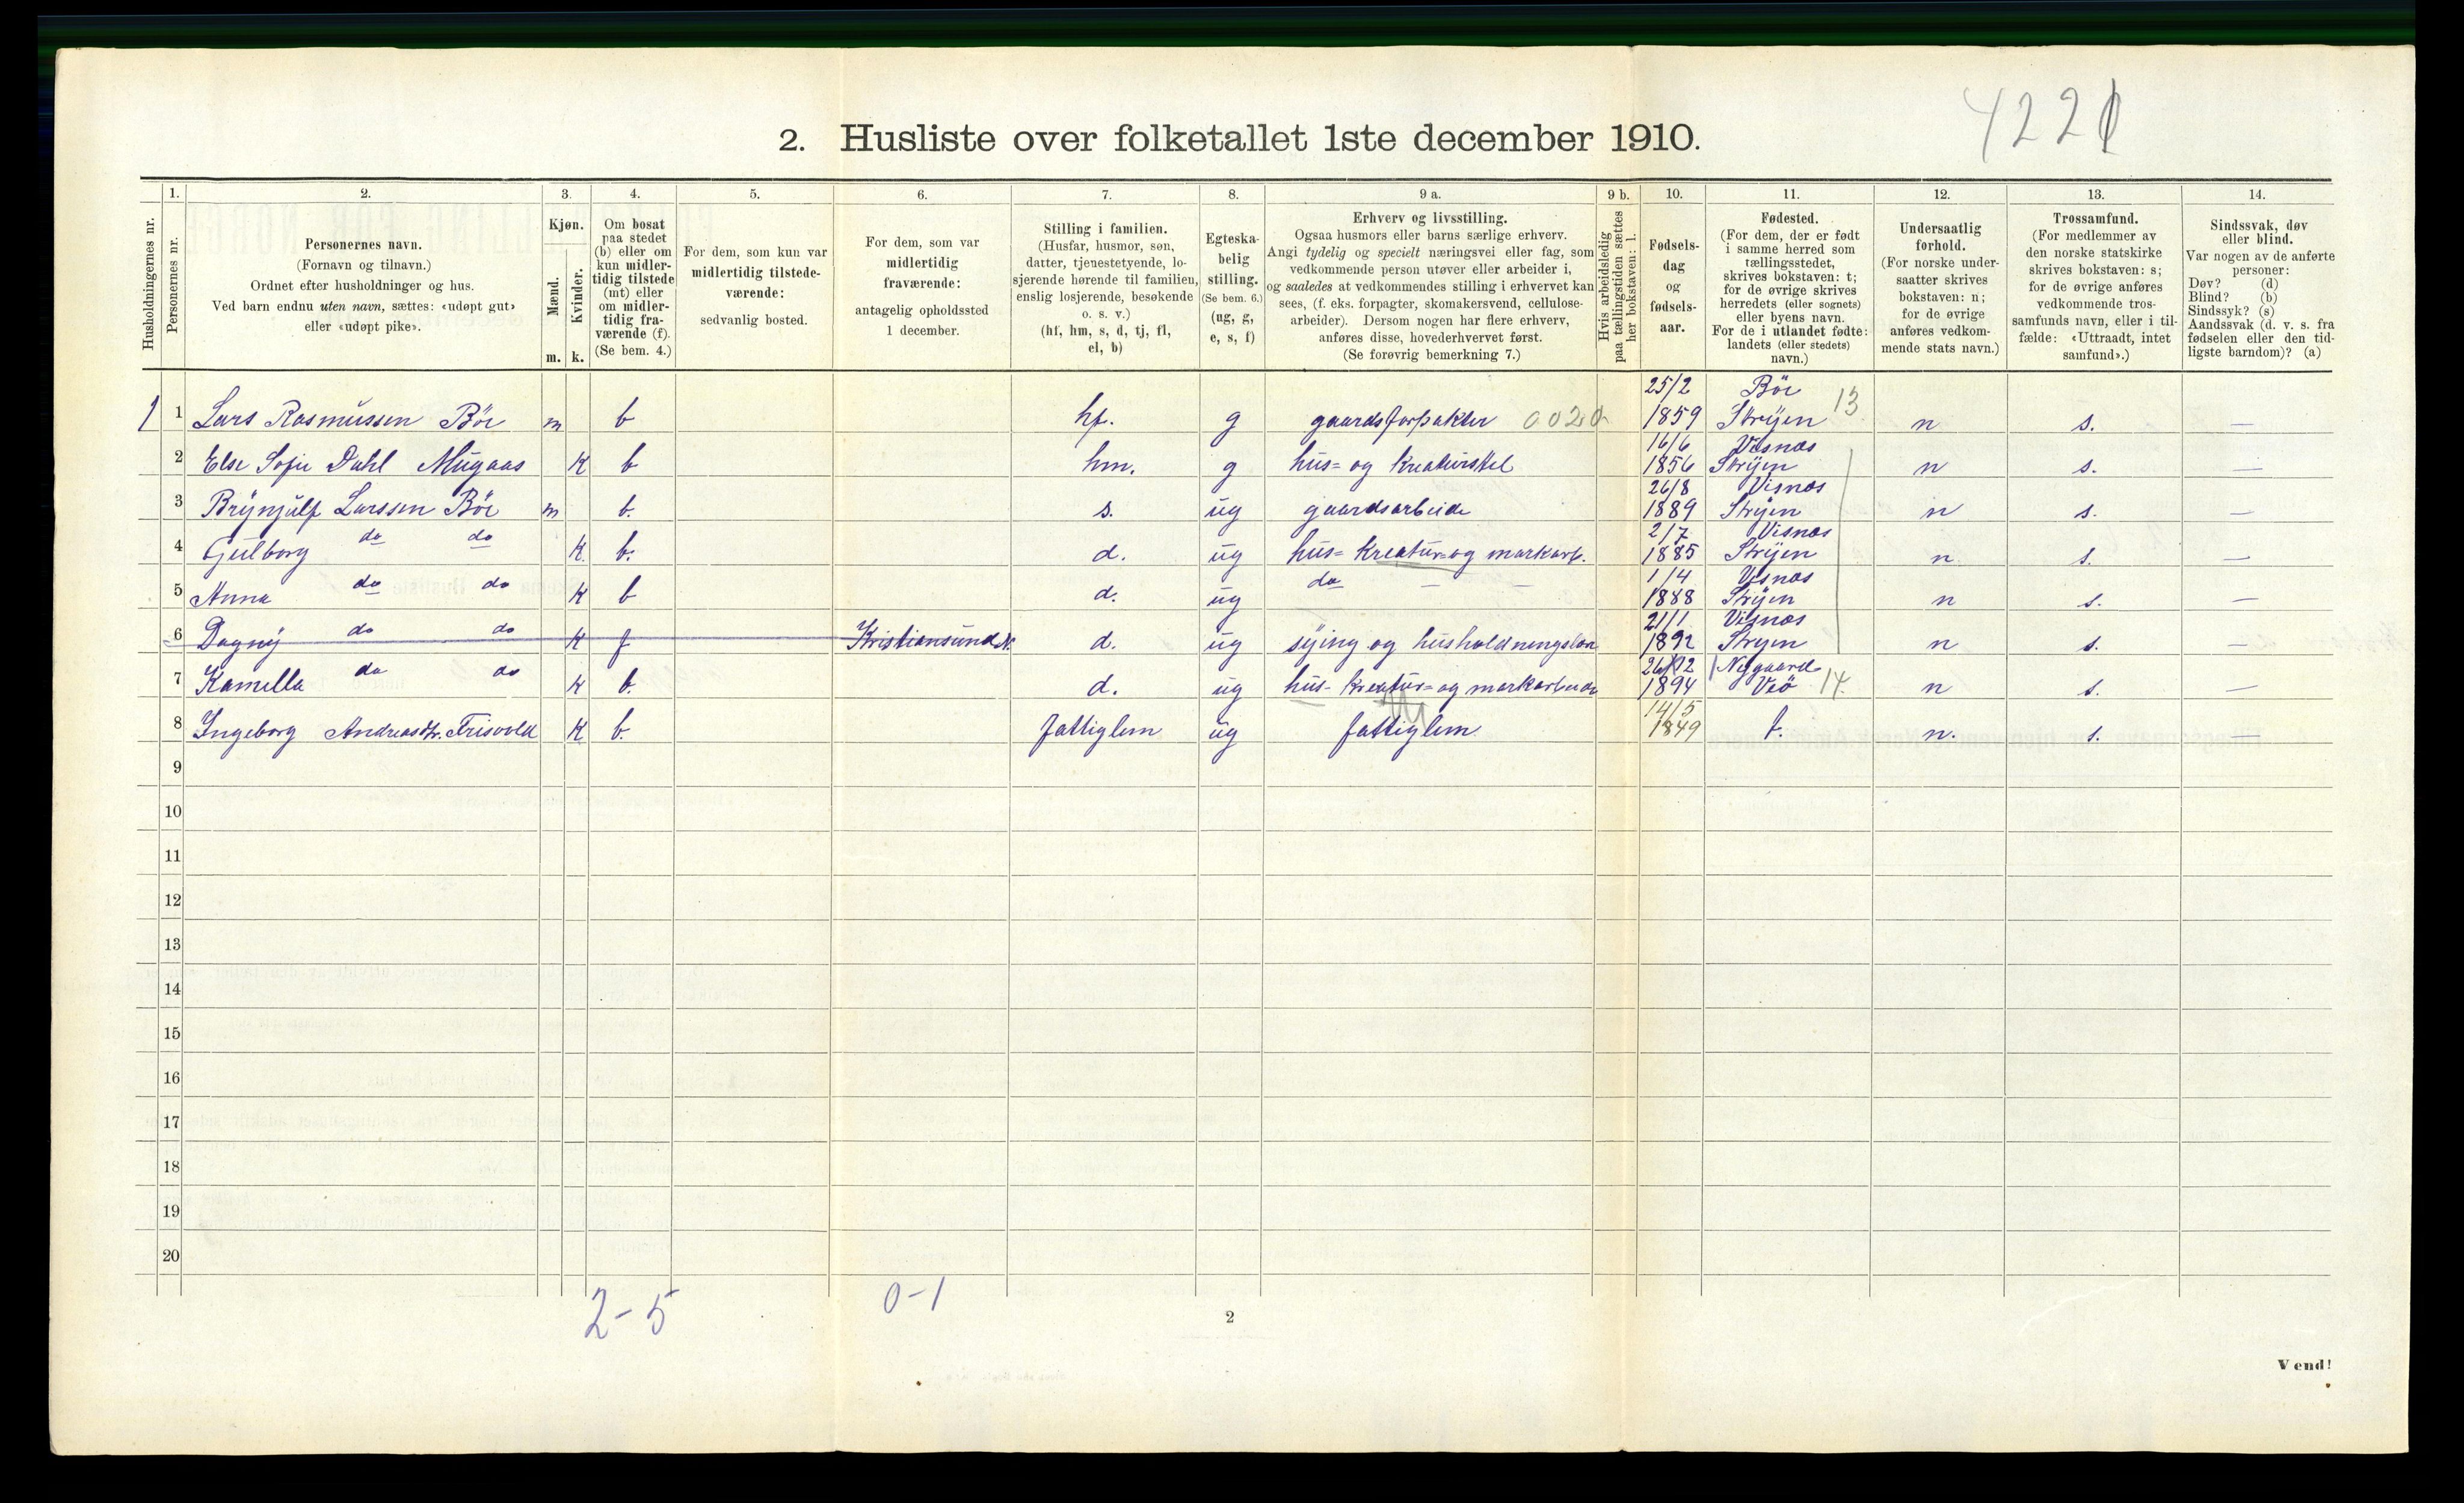 4221
2. Husliste over folketallet 1ste december 1910.
Husholdningernes nr.
1. Personernes nr.
2. Personernes navn.
(Fornavn og tilnavn.)
Ordnet efter husholdninger og hus.
Ved barn endnu uten navn, sættes: «udøpt gut»
eller «udøpt pike».
3. Kjøn.
Mænd. m.
Kvinder. k.
4. Om bosat
paa stedet
(b) eller om
kun midler-
tidig tilstede
(mt) eller
om midler-
tidig fra-
værende (f).
(Se bem. 4.)
5. For dem, som kun var
midlertidig tilstede-
værende:
sedvanlig bosted.
6. For dem, som var
midlertidig
fraværende:
antagelig opholdssted
1 december.
7. Stilling i familien.
(Husfar, husmor, søn,
datter, tjenestetyende, lo-
sjerende hørende til familien,
enslig losjerende, besøkende
o. s. v.)
(hf, hm, s, d, tj, fl,
el, b)
8. Egteska-
belig
stilling.
(Se bem. 6.)
(ug, g,
e, s, f)
9 a. Erhverv og livsstilling.
Ogsaa husmors eller barns særlige erhverv.
Angi tydelig og specielt næringsvei eller fag, som
vedkommende person utøver eller arbeider i,
og saaledes at vedkommendes stilling i erhvervet kan
sees, (f. eks. forpagter, skomakersvend, cellulose-
arbeider). Dersom nogen har flere erhverv,
anføres disse, hovederhvervet først.
(Se forøvrig bemerkning 7.)
9 b. Hvis arbeidsledig
paa tællingstiden sættes
her bokstaven: l.
10. Fødsels-
dag
og
fødsels-
aar.
11. Fødested.
(For dem, der er født
i samme herred som
tællingsstedet,
skrives bokstaven: t;
for de øvrige skrives
herredets (eller sognets)
eller byens navn.
For de i utlandet fødte:
landets (eller stedets)
navn.)
12. Undersaatlig
forhold.
(For norske under-
saatter skrives
bokstaven: n;
for de øvrige
anføres vedkom-
mende stats navn.)
13. Trossamfund.
(For medlemmer av
den norske statskirke
skrives bokstaven: s;
for de øvrige anføres
vedkommende tros-
samfunds navn, eller i til-
fælde: «Uttraadt, intet
samfund».)
14. Sindssvak, døv
eller blind.
Var nogen av de anførte
personer:
Døv? (d)
Blind? (b)
Sindssyk? (s)
Aandssvak (d. v. s. fra
fødselen eller den tid-
ligste barndom)? (a)
25/2 Böe
1 1 Lars Rasmussen Böe m b hf. g gaardsforpakter 0020 1859 Strÿen 13 n s. —
16/6 Visnæs
2 Else Sofie Dahl Mugaas K b hm. g hus= og kreaturstel 1856 Strÿen n s. —
26/8 Visnæs
3 Brÿnjulf Larssen Böe m b. s. ug gaardsarbeide 1889 Strÿen n s. —
2/7 Visnæs
4 Gulborg do do K. b. d. ug hus= kreatur=og markarb. 1885 Strÿen n s. —
1/4 Visnæs
5 Anna do do K b d. ug do — — 1888 Strÿen n s. —
21/1 Visnæs
6 Dagnÿ do do K f Kristiansund N. d. ug sÿing og husholdningslære 1892 Stryen n s. —
26/12 Nygaard
7 Kamella do do K b. d. ug hus- kreatur=og markarbeide 1894 Veö 14. n s. —
14/5
8 Ingeborg Andreasdtr. Trisvold K b. fattiglem ug fattiglem 1849 t. n. s. —
9
10
11
12
13
14
15
16
17
18
19
20
2-5 0-1
2
Vend!